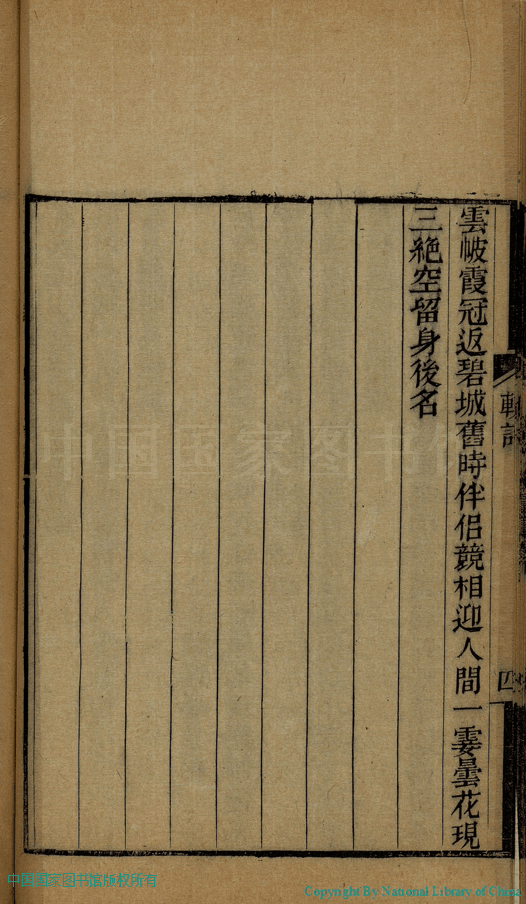 雲帔霞冠返碧城舊時伴侣競相迎人間一霎曇花現
三絶空留身後名
四
中国国家图书馆
中国国家图书馆版权所有
Copyright By National Library of China